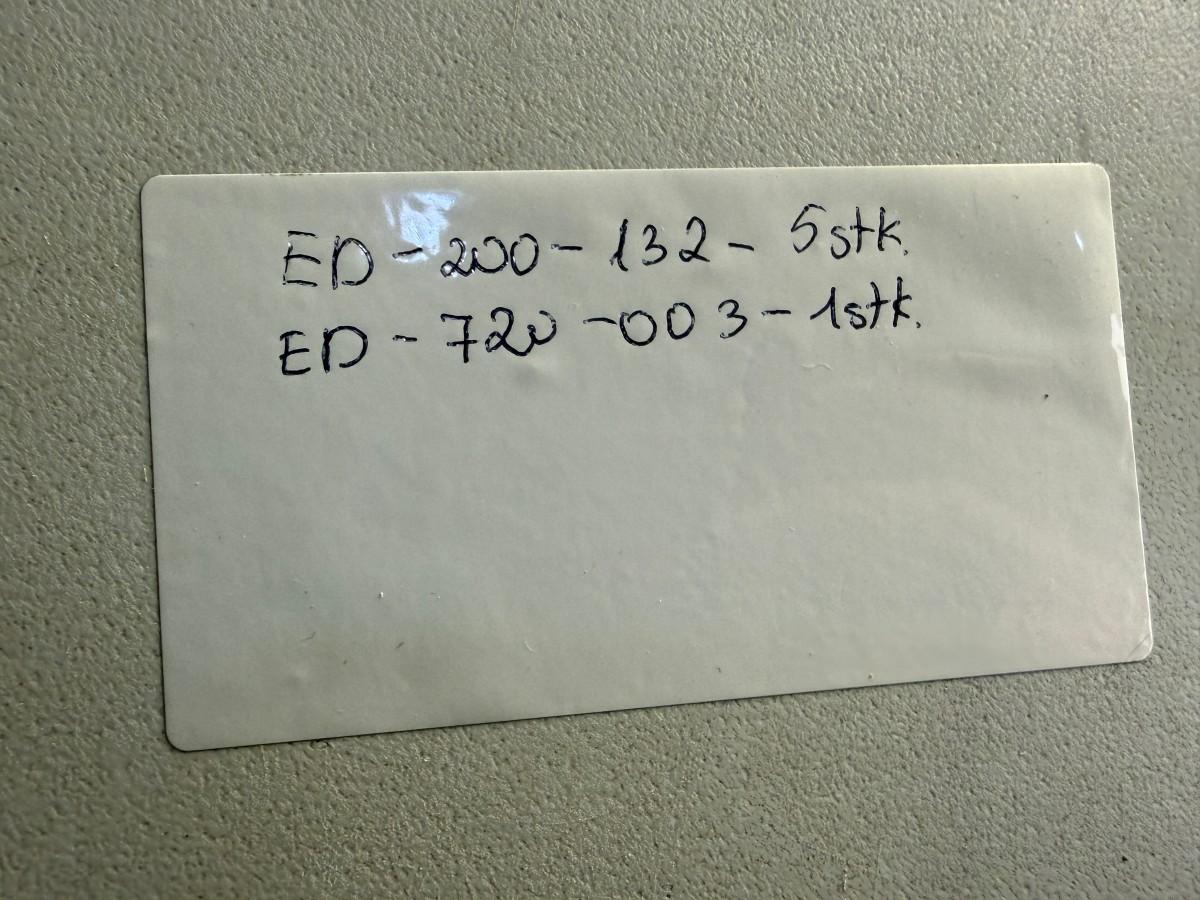 ED - 200 - 132 - 5stk.
ED - 720 - 003 - 1stk.